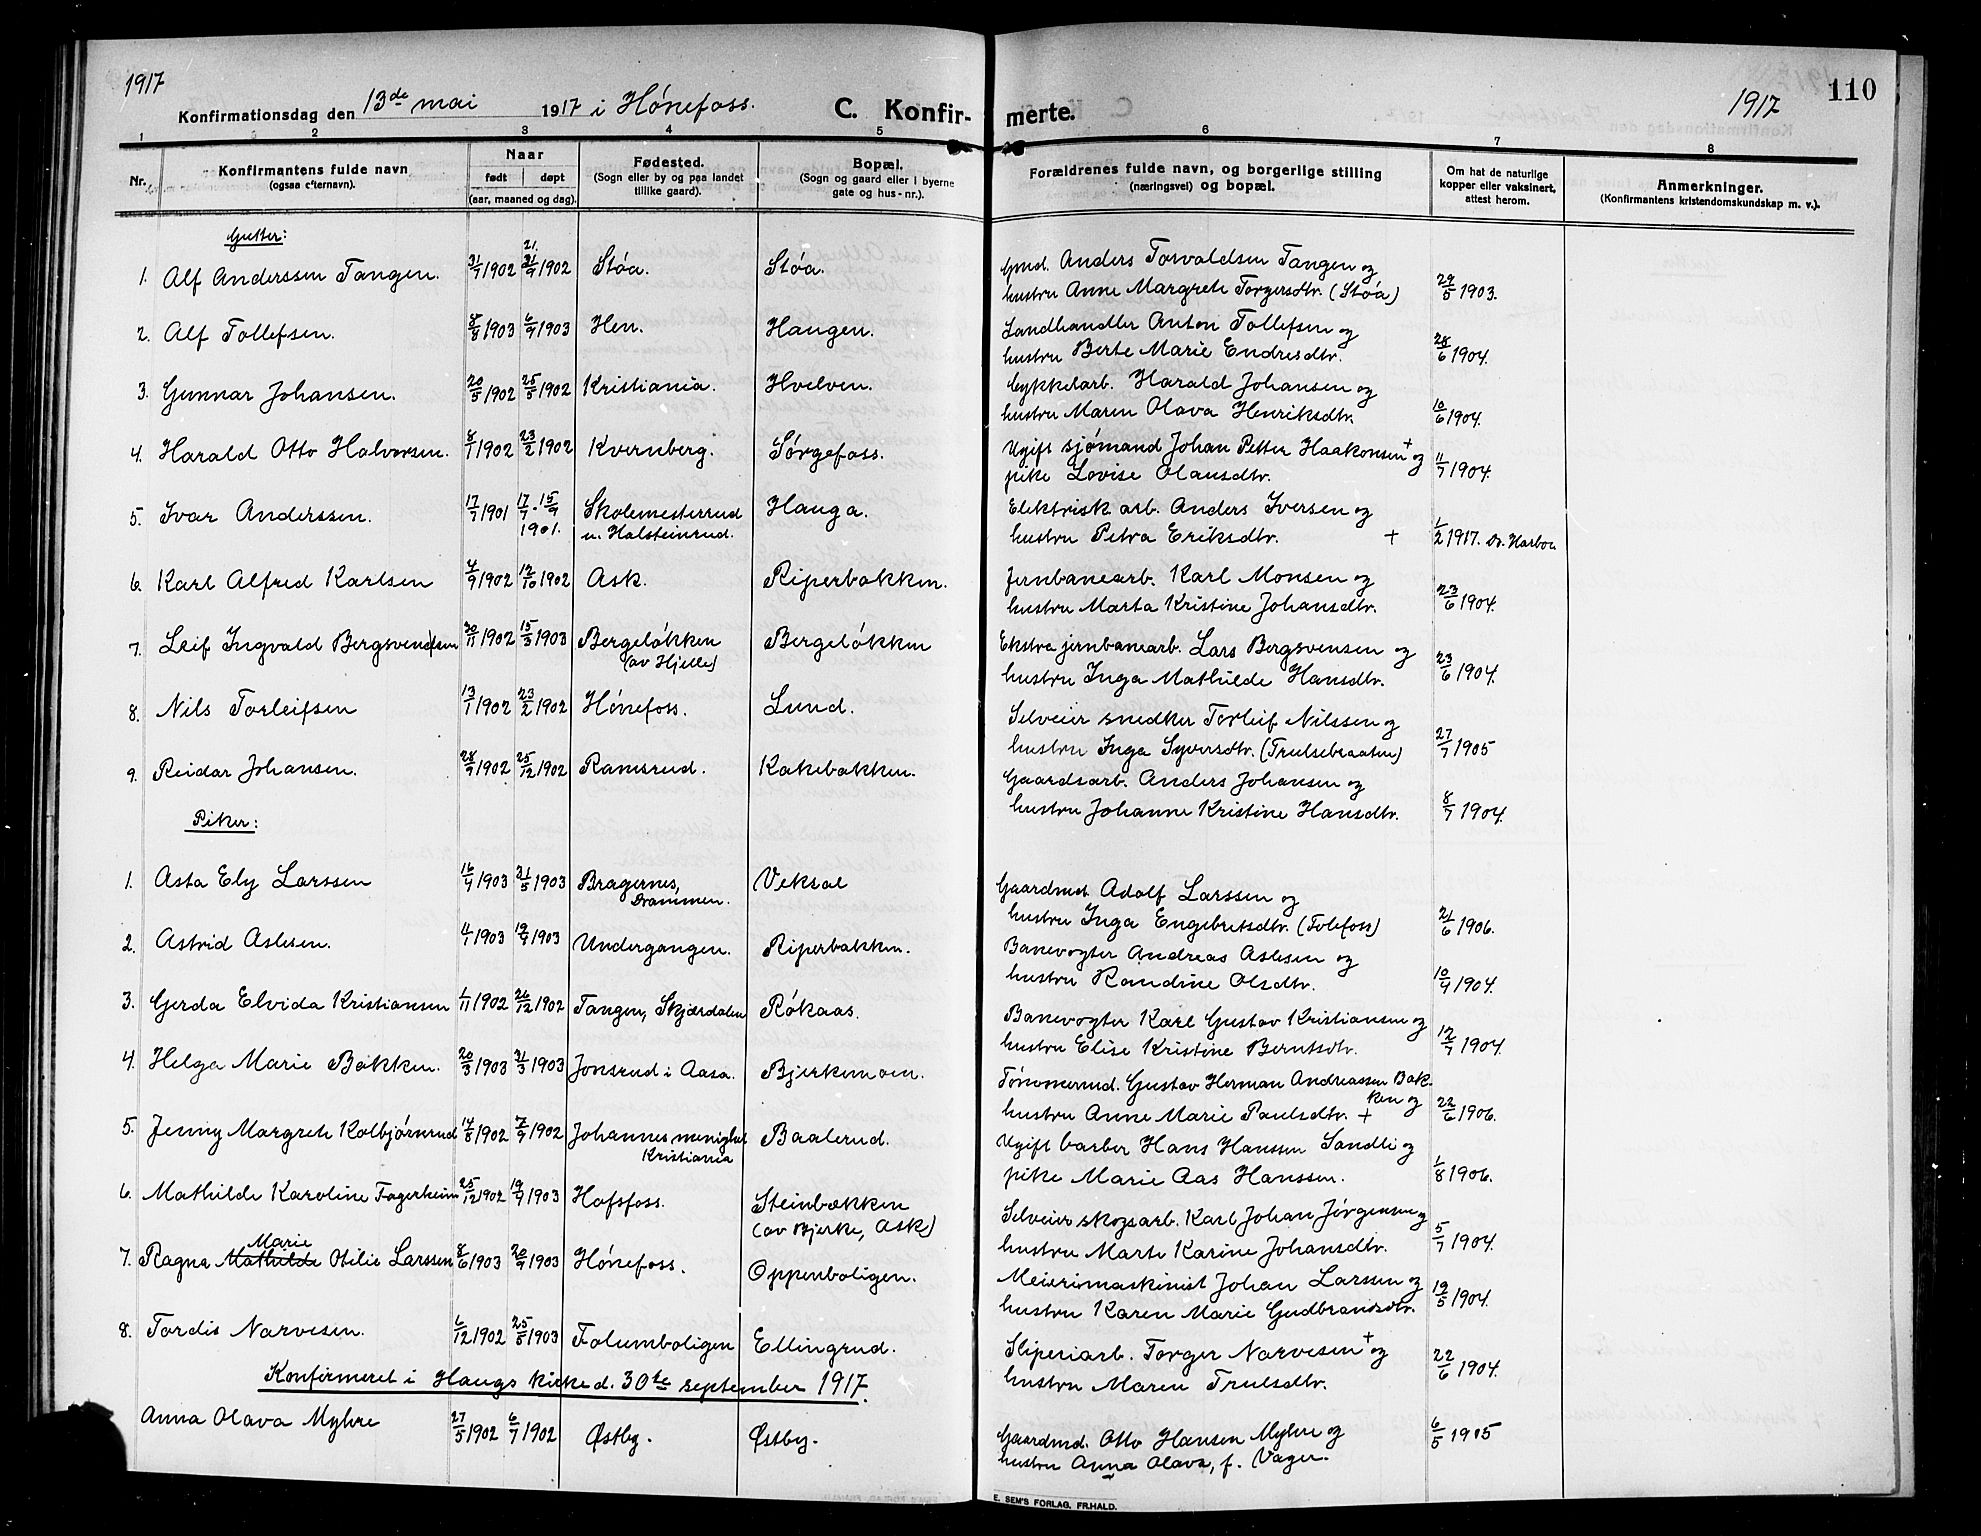 1917
Konfirmationsdag den 13de mai 1917 i Hónefoss.
C. Konfir-
merte.
1917
110
1 2 3 4 5 6 7 8
Nr.
Konfirmantens fulde navn
(ogsaa efternavn).
Naar
født døpt
(aar, maaned og dag).
Fødested.
(Sogn eller by og paa landet
tillike gaard).
Bopæl.
(Sogn og gaard eller i byerne
gate og hus-nr.).
Forældrenes fulde navn, og borgerlige stilling
(næringsvei) og bopæl.
Om hat de naturlige
kopper eller vaksinert,
attest herom.
Anmerkninger.
(Konfirmantens kristendomskundskap m. v.).
Gutter:
1. Alf Anderssen Tangen. 31/7 1902 21/9 1902 Støa. Støa. Gmd. Anders Torvaldsen Tangen og
hustru Anne Margrete Torgersdtr. (Støa) 29/5 1903.
2. Alf Tollefsen. 8/8 1903 6/9 1903 Hen. Haugen. Landhandler Anton Tollefsen og
hustru Berte Marie Endresdtr. 28/6 1904.
3. Gunnar Johansen. 20/5 1902 25/5 1902 Kristiania. Hvelven. Cykkelarb. Harald Johansen og
hustru Maren Olava Henriksdtr. 10/6 1904.
4. Harald Otto Halvorsen. 8/1 1902 23/2 1902 Kvernberg. Sørgefoss. Ugift sjømand Johan Petter Haakonsen + og
pike Lovise Olausdtr. 11/7 1904.
5. Ivar Anderssen. 17/7 1901 17/7 - 15/9 Skolemesterrud Hauga. Elektrisk arb. Anders Iversen og
1901. u. Halsteinrud. hustru Petra Eriksdtr. + 1/2 1917. Dr. Harboe
6. Karl Alfred Karlsen 4/9 1902 12/10 1902 Ask. Riperbakken. Jernbanearb. Karl Monsen og
hustru Marta Kristine Johansdtr. 23/6 1904.
7. Leif Ingvald Bergsvendsen 30/11 1902 15/3 1903 Bergeløkken Bergeløkken Ekstra jernbanearb. Lars Bergsvensen og
(av Hjelle) hustru Inga Mathilde Hansdtr. 23/6 1904.
8. Nils Torleifsen 13/1 1902 23/2 1902 Hónefoss. Lund. Selveier snedker Torleif Nilssen og
hustru Inga Syversdtr. (Trulsebraaten) 27/7 1905
9. Reidar Johansen. 28/9 1902 25/12 1902 Ramsrud. Kakebakken. Gaardsarb. Anders Johansen og
hustru Johanne Kristine Hansdtr. 8/7 1904.
Piker:
1. Asta Ely Larssen 16/4 1903 31/5 1903 Bragernes, Veksal Gaardmd. Adolf Larssen og
Drammen. hustru Inga Engebretsdtr. (Tolefoss) 21/6 1906.
2. Astrid Aslesen. 4/1 1903 19/4 1903 Undergangen. Riperbakken. Banevogter Andreas Aslesen og
hustru Randine Olsdtr. 10/4 1904.
3. Gerda Elvida Kristiansen 1/11 1902 26/12 1902 Tangen, Skjærdalen Røkaas. Banevogter Karl Gustav Kristiansen og
hustru Elise Kristine Berntsdtr. 12/7 1904.
4. Helga Marie Bakken. 20/3 1903 31/3 1903 Jonsrud i Aasa. Bjerkemoen. Tømmermd. Gustav Herman Andreassen Bak-
ken og
hustru Anne Marie Paulsdtr. + 22/6 1906.
5. Jenny Margrete Kolbjørnrud 14/8 1902 7/9 1902 Johannes menighet Baalerud. Ugift barber Hans Hanssen Sandli og
Kristiania pike Marie Aas Hanssen. 1/8 1906.
6. Mathilde Karoline Fagerheim 25/12 1902 19/4 1903 Hofsfoss. Steinbækken Selveier skogsarb. Karl Johan Jørgensen og
(av Bjerke, Ask) hustru Marte Karine Johansdtr. 5/7 1904.
Marie
7. Ragna Mathilde Otilie Larssen 8/6 1903 20/9 1903 Hónefoss. Oppenboligen. Meierimaskinist Johan Larssen og
hustru Karen Marie Gudbrandsdtr. 19/5 1904.
8. Tordis Narvesen. 6/12 1902 25/5 1903 Folumboligen Ellingrud. Sliperiarb. Torger Narvesen + og
hustru Maren Trulsdtr. 22/6 1904.
Konfirmeret i Haugs kirke d. 30te september 1917.
Anna Olava Myhre 27/5 1902 6/7 1902 Østby. Østby. Gaardmd. Otto Hansen Myhre og
hustru Anna Olava, f. Vager. 6/5 1915
E. SEM'S FORLAG, FR.HALD.